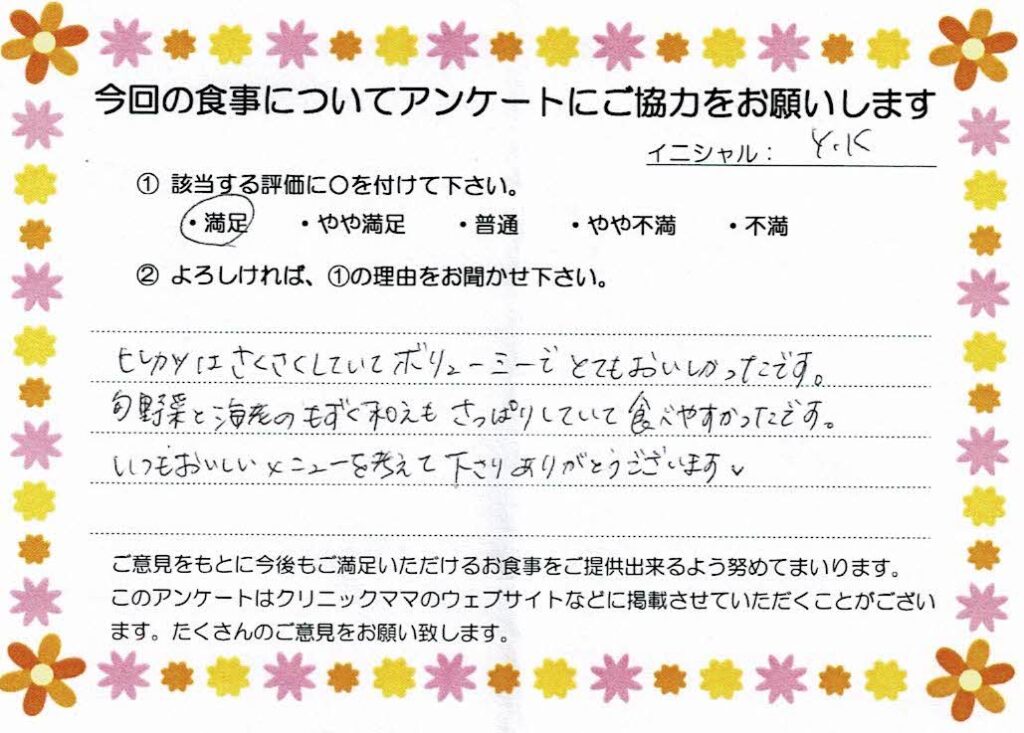 今回の食事についてアンケートにご協力をお願いします
イニシャル： Y.K
① 該当する評価に〇を付けて下さい。
・満足 ・やや満足 ・普通 ・やや不満 ・不満
② よろしければ、①の理由をお聞かせ下さい。
ヒレカツはさくさくしていてボリューミーでとてもおいしかったです。
旬野菜と海老のもずく和えもさっぱりしていて食べやすかったです。
いつもおいしいメニューを考えて下さりありがとうございます。
ご意見をもとに今後もご満足いただけるお食事をご提供出来るよう努めてまいります。
このアンケートはクリニックママのウェブサイトなどに掲載させていただくことがござい
ます。たくさんのご意見をお願い致します。